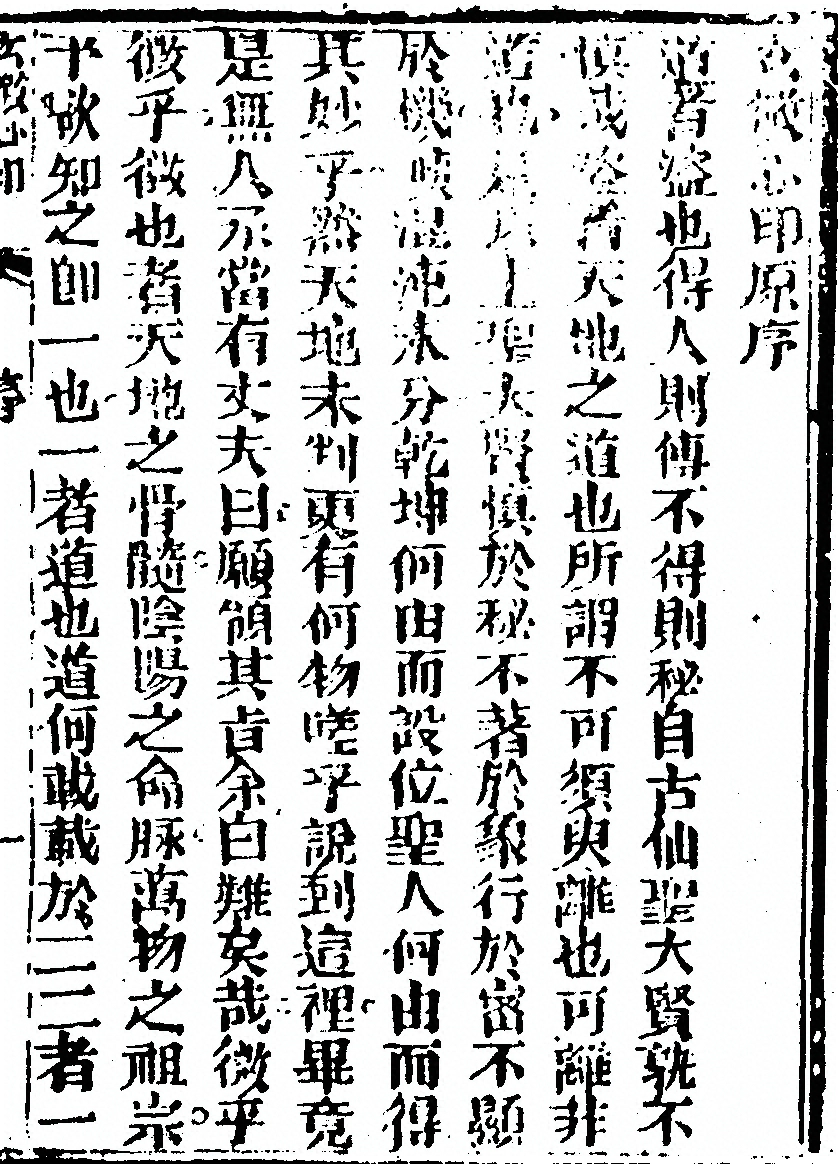 玄微心印原序
道者盜也得人則傳不得則秘自古仙聖大賢孰不
慎戒盜者天地之道也所謂不可須臾離也可離非
道也是以上聖大賢慎於秘不著於象行於密不顯
於幾噫混沌未分乾坤何由而設位聖人何由而得
其妙乎然天地未判更有何物嗟乎說到這裡畢竟
是無人承當有丈夫曰願領其旨余曰難矣哉微乎
微乎微也者天地之骨髓陰陽之命脉萬物之祖宗
乎欲知之卽一也一者道也道何載載於二二者一
玄微心印 序 一